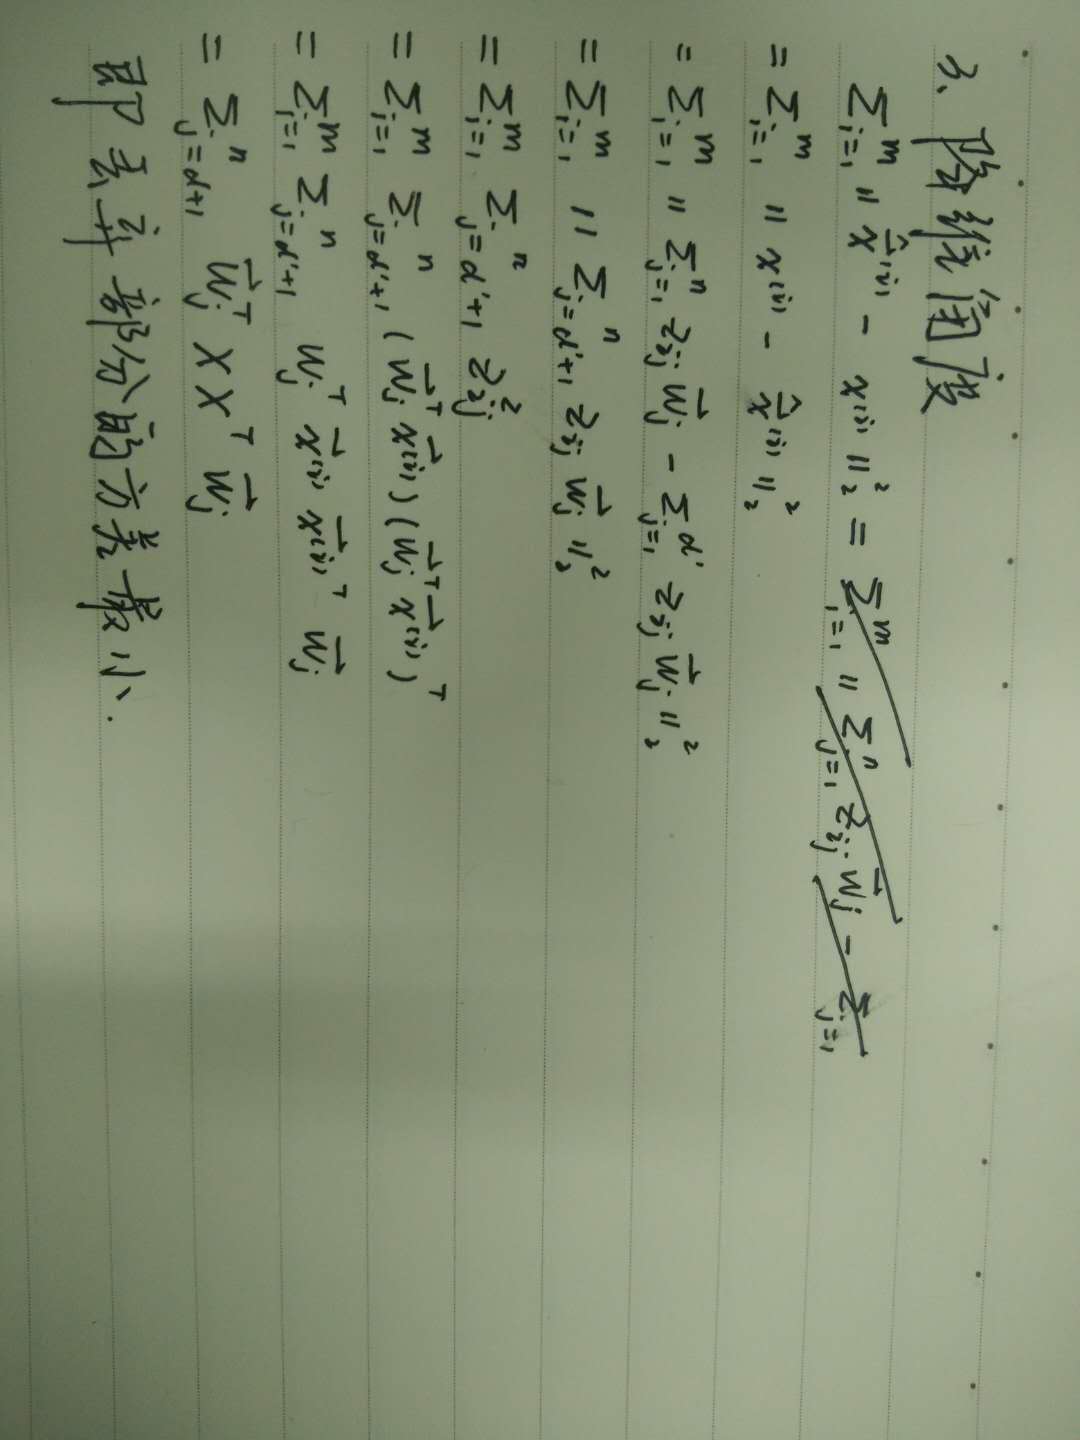 3、降维角度
Σᵢ₌₁ᵐ ‖ x̂⁽ⁱ⁾ - x⁽ⁱ⁾ ‖₂² = Σᵢ₌₁ᵐ ‖ Σⱼ₌₁ⁿ zᵢⱼ · w⃗ⱼ - Σⱼ₌₁
= Σᵢ₌₁ᵐ ‖ x⁽ⁱ⁾ - x̂⁽ⁱ⁾ ‖₂²
= Σᵢ₌₁ᵐ ‖ Σⱼ₌₁ⁿ zᵢⱼ w⃗ⱼ - Σⱼ₌₁ᵈ' zᵢⱼ · w⃗ⱼ ‖₂²
= Σᵢ₌₁ᵐ ‖ Σⱼ₌d'₊₁ⁿ zᵢⱼ w⃗ⱼ ‖₂²
= Σᵢ₌₁ᵐ Σⱼ₌d'₊₁ⁿ zᵢⱼ²
= Σᵢ₌₁ᵐ Σⱼ₌d'₊₁ⁿ (w⃗ⱼᵀ x⃗⁽ⁱ⁾) (w⃗ⱼᵀ x⃗⁽ⁱ⁾)ᵀ
= Σᵢ₌₁ᵐ Σⱼ₌d'₊₁ⁿ wⱼᵀ x⃗⁽ⁱ⁾ x⃗⁽ⁱ⁾ᵀ w⃗ⱼ
= Σⱼ₌d'₊₁ⁿ w⃗ⱼᵀ X Xᵀ w⃗ⱼ
即丢弃部分的方差最小.